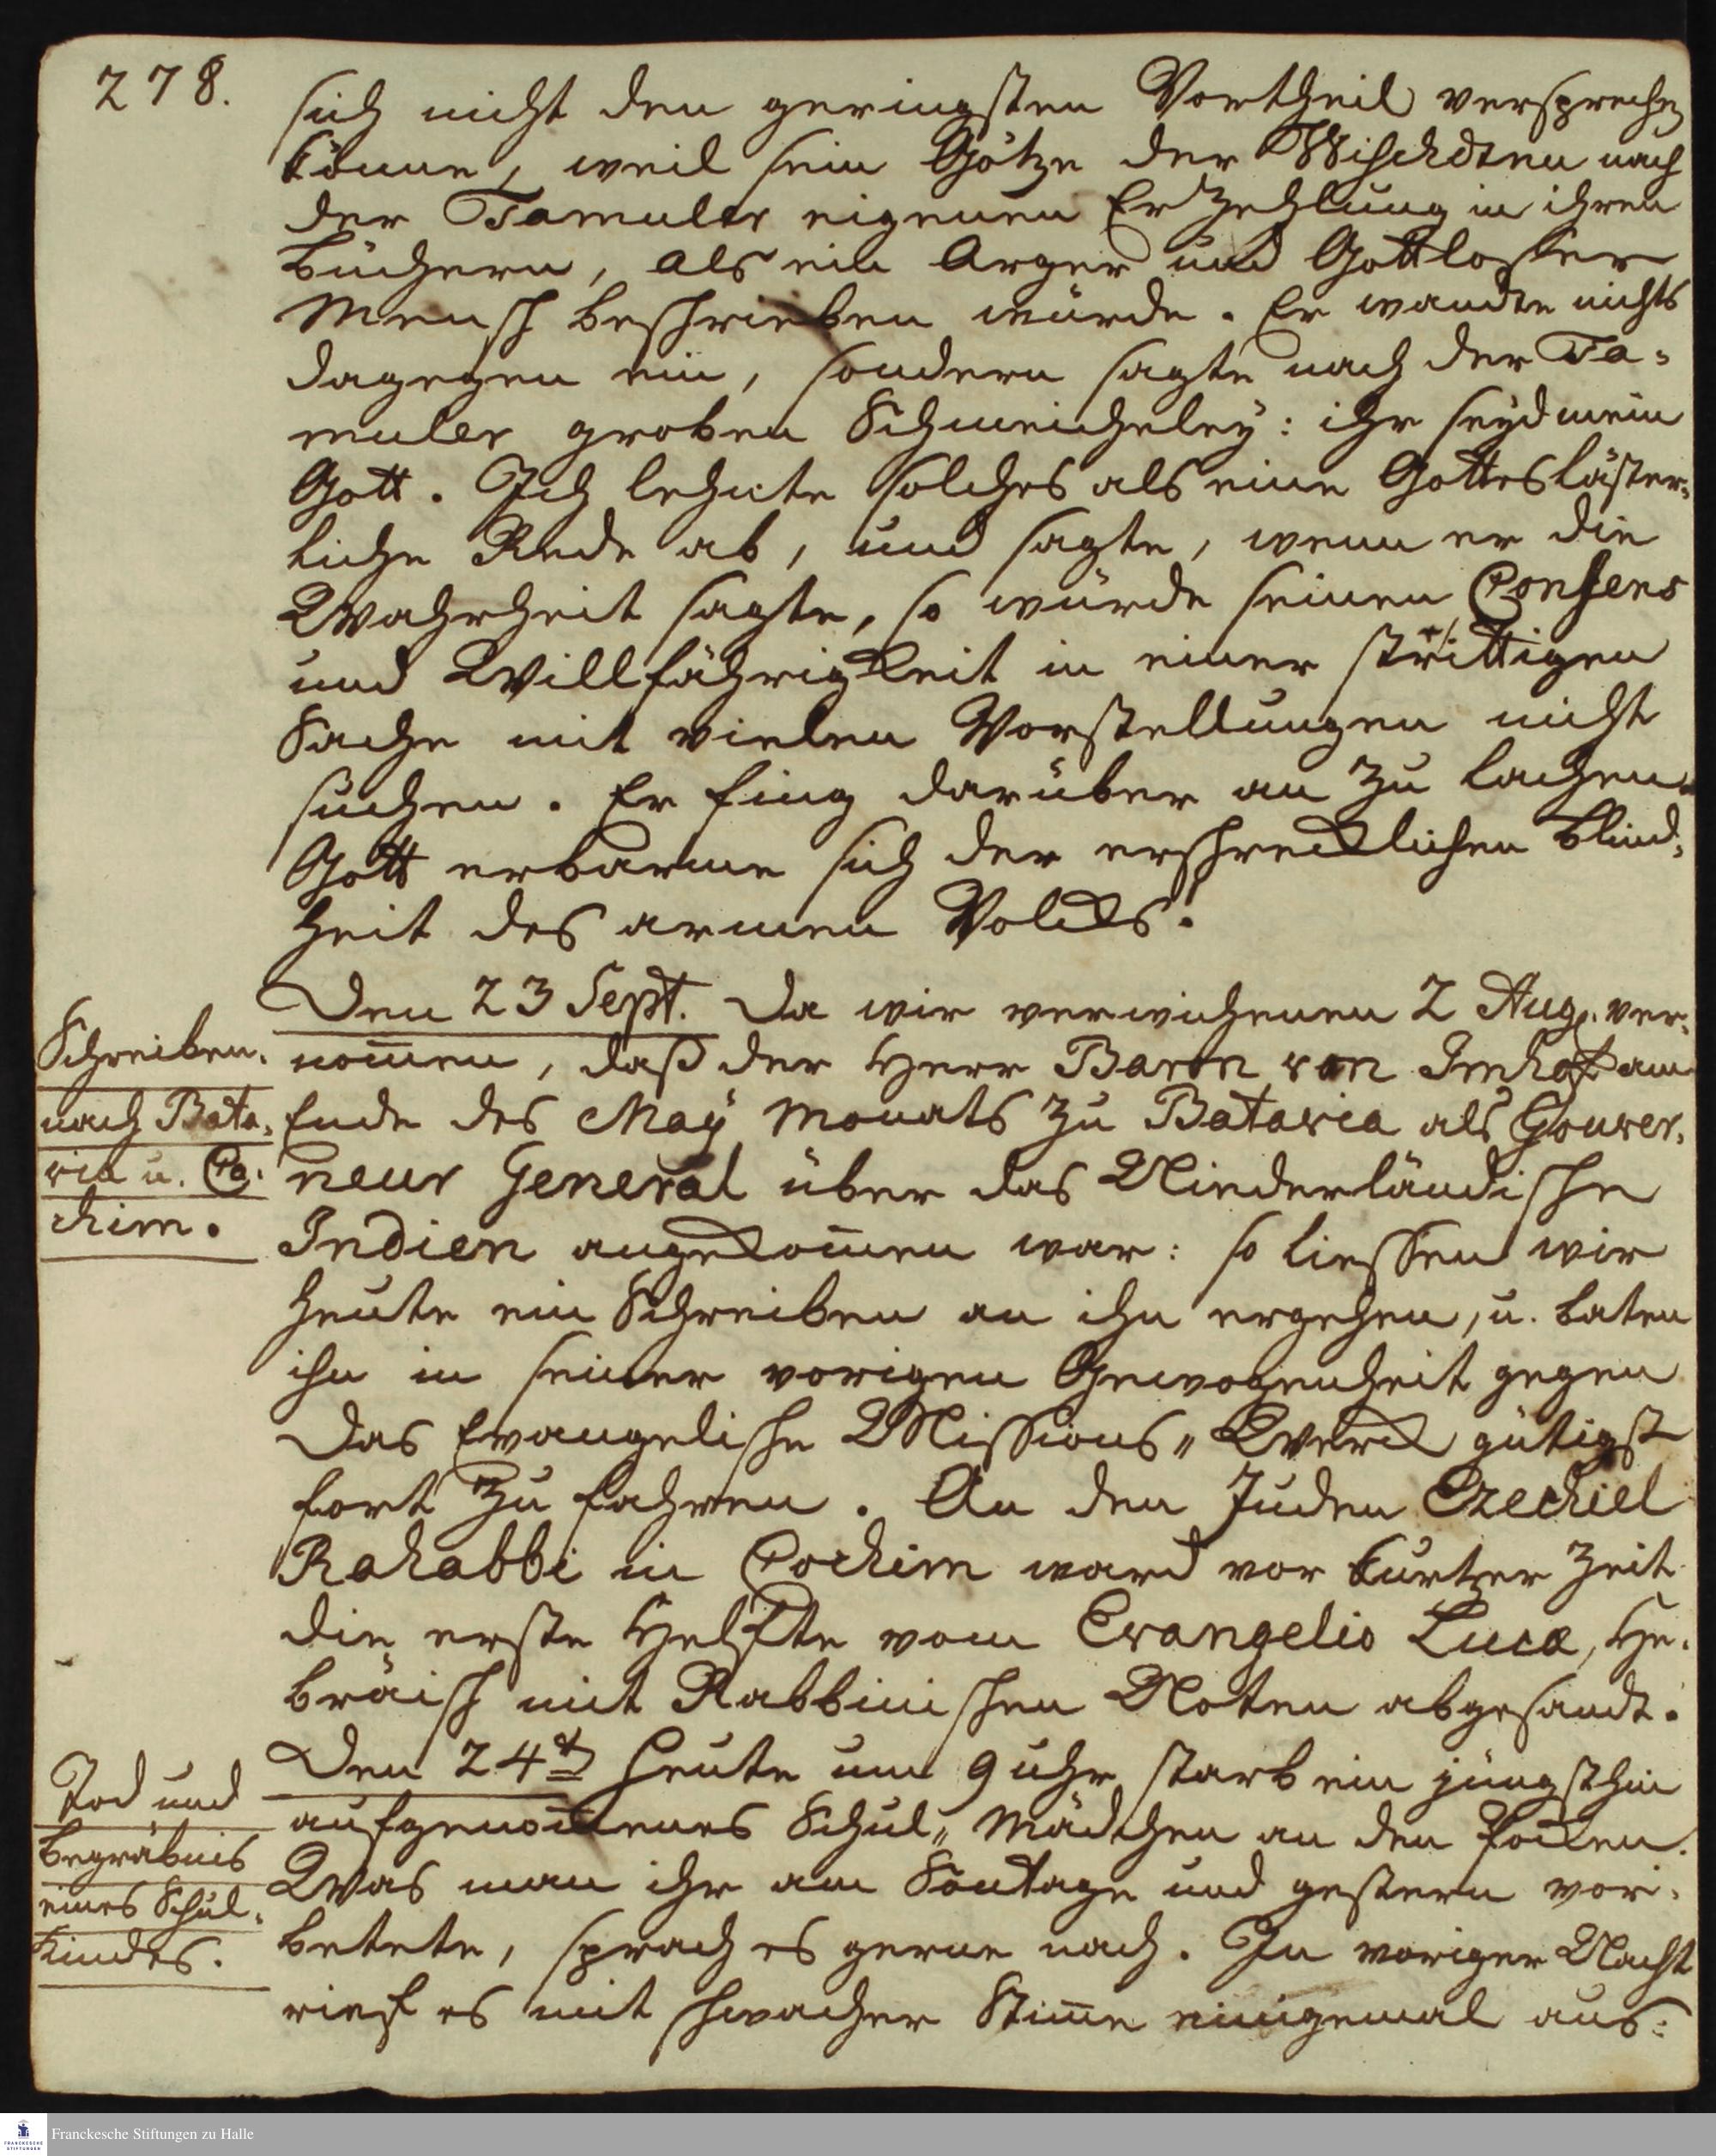 278.
sich nicht den geringsten Vortheil versprechen
könne, weil sein Götze der Wischdnu nach
der Tamuler eigenen Erzehlung in ihren
Büchern, als ein Arger und Gottloser
Mensch beschrieben würde. Er wandte nichts
dagegen ein, sondern sagte nach der Ta-
muler groben Schmeicheley: ihr seyd mein
Gott. Ich lehnte solches als eine Gottesläster-
liche Rede ab, und sagte, wenn er die
Wahrheit sagte, so würde seinen Consens
und Willfährigkeit in einer strittigen
Sache mit vielen Vorstellungen nicht
suchen. Er fing darüber an zu lachen.
Gott erbarme sich der erschrecklichen Blind-
heit des armen Volcks!
Den 23 Sept. Da wir verwichenen 2 Aug. ver-
nom̄en, daß der Herr Baron von Imhof am
Ende des May Monats zu Batavia als Gouver-
neur General über das Niederländische
Indien angekom̄en war: so liessen wir
heute ein Schreiben an ihn ergehen, u. baten
ihn in seiner vorigen Gewogenheit gegen
das Evangelische Missions-Werck gütigst
fort zu fahren. An den Juden Ezechiel
Rahabbi in Cochim ward vor kurtzer Zeit
die erste Helffte vom Evangelio Luca, He-
bräisch mit Rabbinischen Noten abgesandt.
Schreiben
nach Bata-
via u. Co-
chim.
Den 24t Heute um 9 Uhr starb ein jüngsthin
aufgenom̄enes Schul-Mädchen an den Pocken.
Was man ihr am Son̄tage und gestern vor-
betete, sprach es gerne nach. In voriger Nacht
rief es mit schwacher Stim̄e einigemal aus:
Tod und
Begräbnis
eines Schul-
kindes.
Franckesche Stiftungen zu Halle